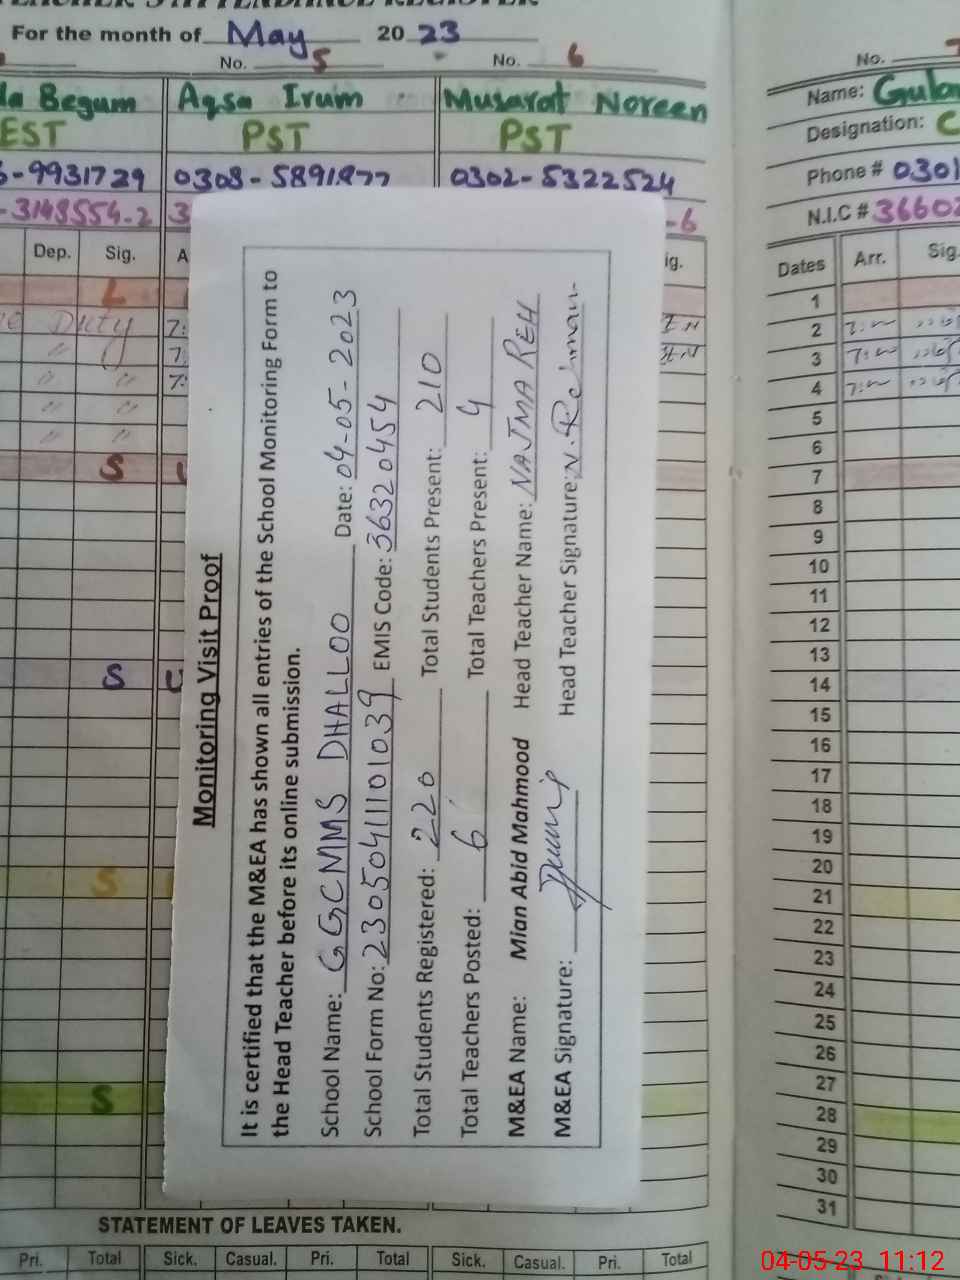 TEACHER'S ATTENDANCE REGISTER
For the month of May 2023
No. 5
No. 6
No. 7
Begum
Aqsa Irum
Musarat Noreen
Name:
EST
PST
PST
Designation: C
-9931729
0308-5891877
0302-5322524
Phone # 0301
-3148554-2
3
-6
N.I.C # 36602
Dep. Sig.
A
ig.
Dates Arr. Sig.
L
1
Duty
7:
2
" 7:
3
" " 7:
4
" "
5
" "
6
S
7
8
9
10
11
12
13
S
14
15
16
17
18
19
20
S
21
22
23
24
25
26
27
S
28
29
30
31
Monitoring Visit Proof
It is certified that the M&EA has shown all entries of the School Monitoring Form to
the Head Teacher before its online submission.
School Name: GGCMMS DHALLOO Date: 04-05-2023
School Form No: 23050411101039 EMIS Code: 36320454
Total Students Registered: 220 Total Students Present: 210
Total Teachers Posted: 6 Total Teachers Present: 4
M&EA Name: Mian Abid Mahmood Head Teacher Name: NAJMA REH
M&EA Signature: Head Teacher Signature: N. Rehman
STATEMENT OF LEAVES TAKEN.
Pri. Total Sick. Casual. Pri. Total Sick. Casual. Pri. Total
04-05-23 11:12